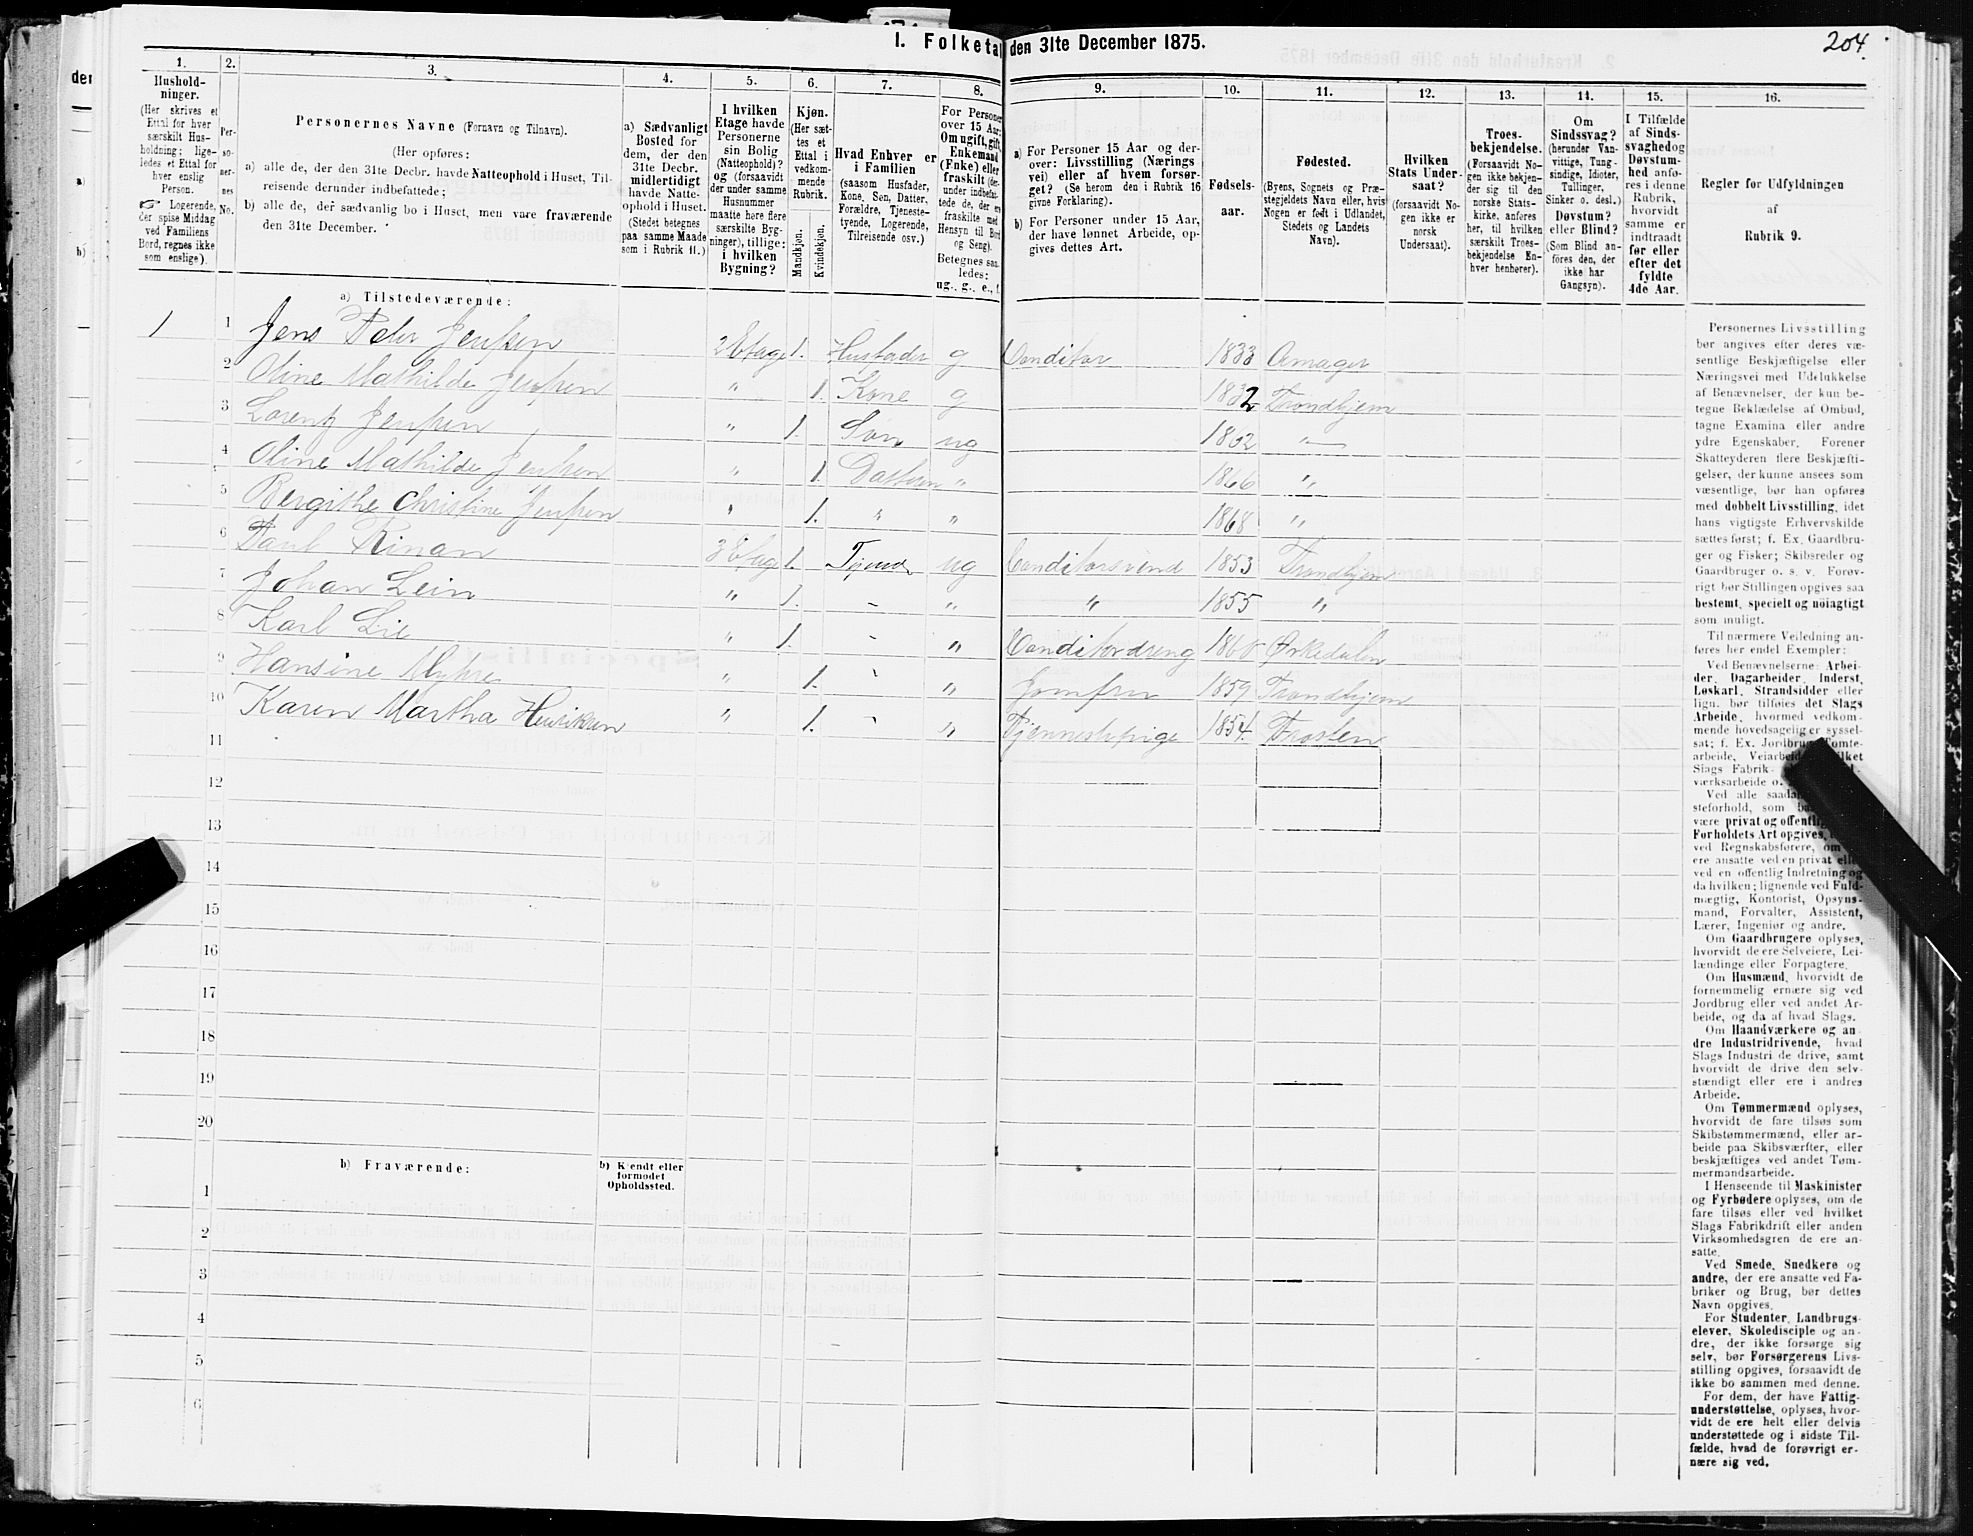 I. Folketal den 31te December 1875.
204.
1.
Hushold-
ninger.
(Her skrives et
Ettal for hver
særskilt Hus-
holdning; lige-
ledes et Ettal for
hver enslig
Person.
Logerende,
der spise Middag
ved Familiens
Bord, regnes ikke
som enslige).
2.
Per-
so-
ner-
nes
No.
3.
Personernes Navne (Fornavn og Tilnavn).
(Her opføres:
a) alle de, der den 31te Decbr. havde Natteophold i Huset, Til-
reisende derunder indbefattede;
b) alle de, der sædvanlig bo i Huset, men vare fraværende
den 31te December.
4.
a) Sædvanligt
Bosted for
dem, der den
31te Decbr.
midlertidigt
havde Natte-
ophold i Huset.
(Stedet betegnes
paa samme Maade
som i Rubrik 11.)
5.
I hvilken
Etage havde
Personerne
sin Bolig
(Natteophold)?
og (forsaavidt
der under samme
Husnummer
maatte høre flere
særskilte Byg-
ninger), tillige:
i hvilken
Bygning?
6.
Kjøn.
(Her sæt-
tes et
Ettal i
vedkom-
mende
Rubrik.
Mandkjøn.
Kvindekjøn.
7.
Hvad Enhver er
i Familien
(saasom Husfader,
Kone, Søn, Datter,
Forældre, Tjeneste-
tyende, Logerende,
Tilreisende osv.)
8.
For Personer
over 15 Aar:
Om ugift, gift,
Enkemand
(Enke) eller
fraskilt (der-
under indbefat-
tede de, der ere
fraskilte med
Hensyn til Bord
og Seng).
Betegnes saa-
ledes:
ug., g., e., f.
9.
a) For Personer 15 Aar og der-
over: Livsstilling (Nærings
vei) eller af hvem forsør-
get? (Se herom den i Rubrik 16
givne Forklaring).
b) For Personer under 15 Aar,
der have lønnet Arbeide, op-
gives dettes Art.
10.
Fødsels-
aar.
11.
Fødested.
(Byens, Sognets og Præ-
stegjeldets Navn eller, hvis
Nogen er født i Udlandet,
Stedets og Landets
Navn).
12.
Hvilken
Stats Under-
saat?
(forsaavidt No-
gen ikke er
norsk
Undersaat).
13.
Troes-
bekjendelse.
(Forsaavidt No-
gen ikke bekjen-
der sig til den
norske Stats-
kirke, anføres
her, til hvilken
særskilt Troes-
bekjendelse En-
hver henhører).
14.
Om
Sindssvag?
(herunder Van-
vittige, Tung-
sindige, Idioter,
Tullinger,
Sinker o. desl.)
Døvstum?
eller Blind?
(Som Blind an-
føres den, der
ikke har
Gangsyn).
15.
I Tilfælde
af Sinds-
svaghed og
Døvstum-
hed anfø-
res i denne
Rubrik,
hvorvidt
samme er
indtraadt
før eller
efter det
fyldte
4de Aar.
16.
Regler for Udfyldningen
af
Rubrik 9.
a) Tilstedeværende:
1 1 Jens Peter Jensen 2 Etage 1. Husfader g Conditor 1833 Amager
2 Oline Mathilde Jensen " 1. Kone g 1832 Trondhjem
3 Lorentz Jensen " 1. Søn ug 1862 "
4 Oline Mathilde Jensen " 1. Datteren " 1866 "
5 Bergithe Christine Jensen " 1. " " 1868 "
6 Paul Rinan 3 Etage 1. Tjener ug Conditorsvend 1853 Trondhjem
7 Johan Lein " 1. - " " 1855 "
8 Karl Lie " 1. - " Conditordreng 1860 Ørkedalen
9 Hansine Myhre " 1. - " Jomfru 1859 Trondhjem
10 Karen Martha Henriksen " 1. - " Tjennestepige 1854. Frosten
11
12
13
14
15
16
17
18
19
20
b) Fraværende:
b) Kjendt eller
formodet
Opholdssted.
1
2
3
4
5
6
Personernes Livsstilling
bør angives efter deres væ-
sentlige Beskjæftigelse eller
Næringsvei med Udelukkelse
af Benævnelser, der kun be-
tegne Beklædelse af Ombud,
tagne Examina eller andre
ydre Egenskaber. Forener
Skatteyderen flere Beskjæfti-
gelser, der kunne ansees som
væsentlige, bør han opføres
med dobbelt Livsstilling, idet
hans vigtigste Erhvervskilde
sættes først; f. Ex. Gaardbru-
ger og Fisker; Skibsreder og
Gaardbruger o. s. v. Forøv-
rigt bør Stillingen opgives saa
bestemt, specielt og nøiagtigt
som muligt.
Til nærmere Veiledning an-
føres her endel Exempler:
Ved Benævnelserne: Arbei-
der, Dagarbeider, Inderst,
Løskarl, Strandsidder eller
lign. bør tilføies det Slags
Arbeide, hvormed vedkom-
mende hovedsagelig er syssel-
sat; f. Ex. Jordbrug, Tomte-
arbeide, Veiarbeide, hvilket
Slags Fabrik-
værksarbeide o.
Ved alle saadanne
steforhold, som
være privat og offentlig
Forholdets Art opgives,
ved Regnskabsførere, om
ere ansatte ved en privat eller
ved en offentlig Indretning og
da hvilken; lignende ved Fuld-
mægtig, Kontorist, Opsyns-
mand, Forvalter, Assistent,
Lærer, Ingeniør og andre.
Om Gaardbrugere oplyses,
hvorvidt de ere Selveiere, Lei-
lændinge eller Forpagtere.
Om Husmænd, hvorvidt de
fornemmelig ernære sig ved
Jordbrug eller ved andet Ar-
beide, og da af hvad Slags.
Om Haandværkere og an-
dre Industridrivende, hvad
Slags Industri de drive, samt
hvorvidt de drive den selv-
stændigt eller ere i andres
Arbeide.
Om Tømmermænd oplyses,
hvorvidt de fare tilsøs som
Skibstømmermænd, eller ar-
beide paa Skibsværfter, eller
beskjæftiges ved andet Tøm-
mermandsarbeide.
I Henseende til Maskinister
og Fyrbødere oplyses, om de
fare tilsøs eller ved hvilket
Slags Fabrikdrift eller anden
Virksomhedsgren de ere an-
satte.
Ved Smede, Snedkere og
andre, der ere ansatte ved Fa-
briker og Brug, bør dettes
Navn opgives.
For Studenter, Landbrugs-
elever, Skoledisciple og an-
dre, der ikke forsørge sig
selv, bør Forsørgerens Livs-
stilling opgives, forsaavidt de
ikke bo sammen med denne.
For dem, der have Fattig-
understøttelse, oplyses, hvor-
vidt de ere helt eller delvis
understøttede og i sidste Til-
fælde, hvad de forøvrigt er-
nære sig ved.